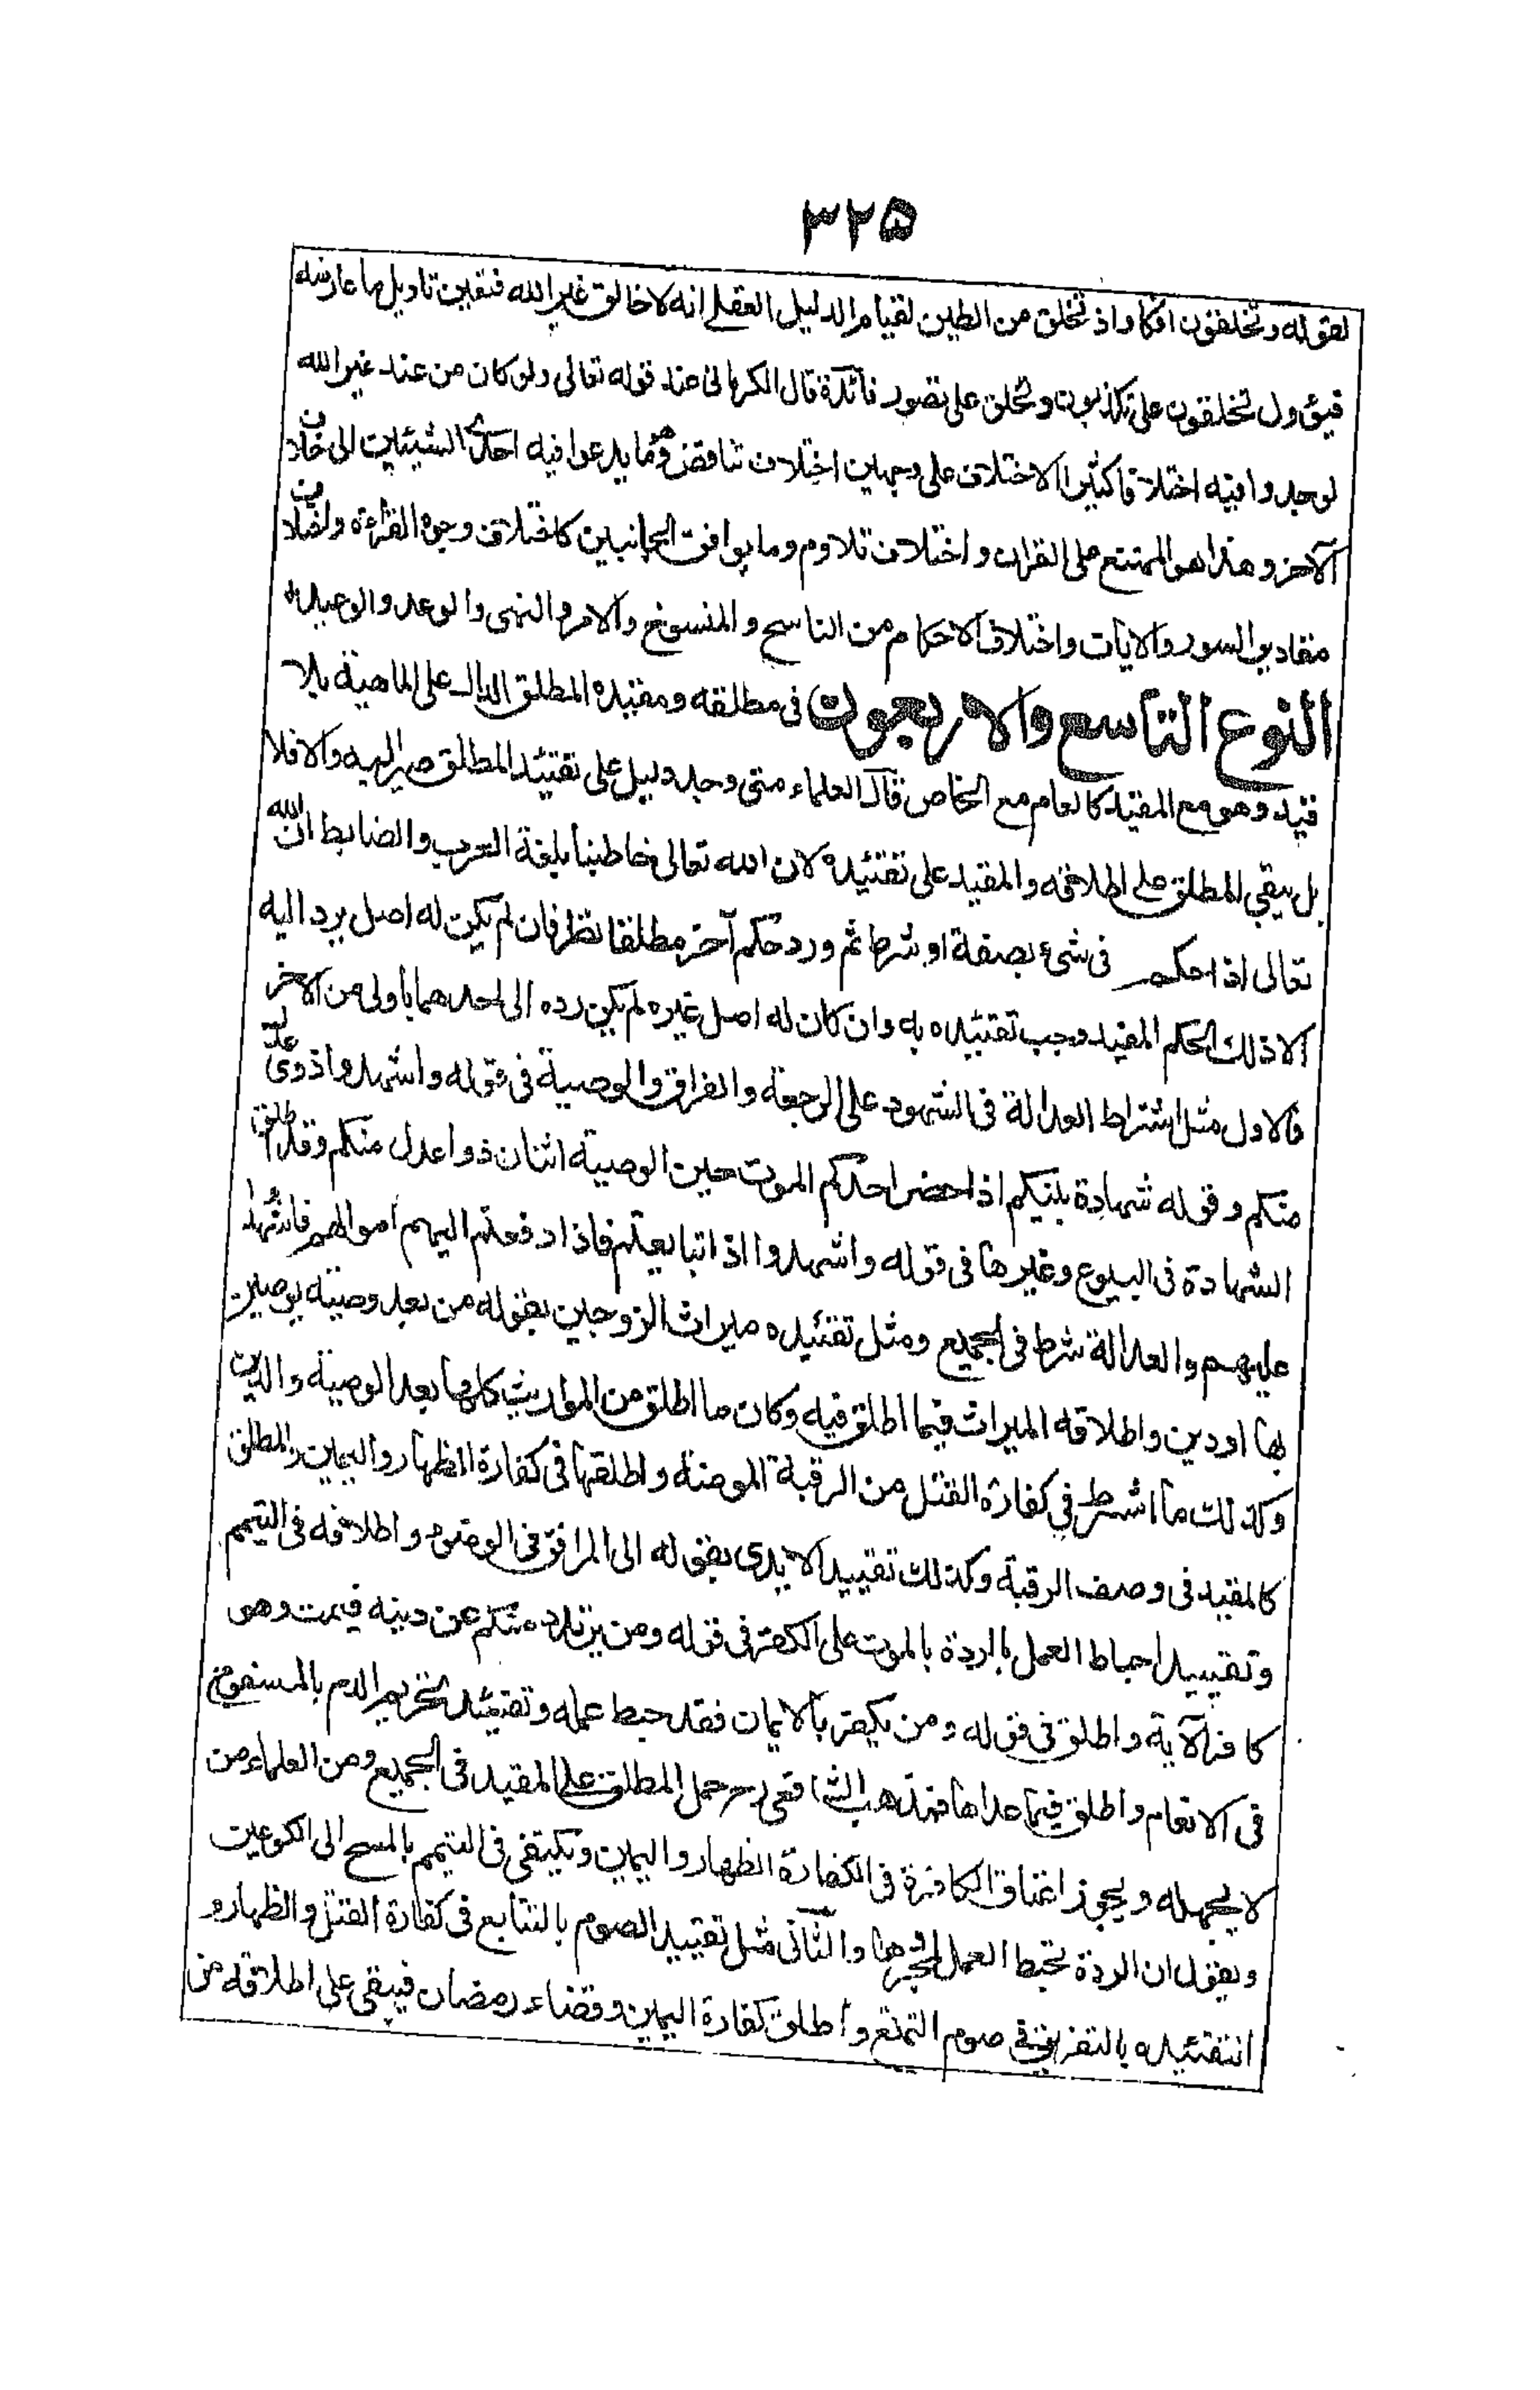 ٣٢۵
لقوله وتخلقون افكا واذ تخلق من الطين لقيام الدليل العقلي انه لا خالق غير الله فتعين تاويل ما عارضه
فيؤول تخلقون على تكذبون وتخلق على تصور فائدة قال الكرماني عند قوله تعالى ولو كان من عند غير الله
لوجدوا فيه اختلافا كثيرا الاختلاف على وجهين اختلاف تناقض وهو ما يدعوا فيه احد الشيئين الى خلاف
الآخر وهذا هو الممتنع على القران واختلاف تلاوم وما يوافق الجانبين كاختلاف وجوه القراءة واختلاف
مقادير السور والايات واختلاف الاحكام من الناسخ والمنسوخ والامر والنهى والوعد والوعيد
النوع التاسع والاربعون فى مطلقه ومقيده المطلق الدال على الماهية بلا
قيد وهو مع المقيد كالعام مع الخاص قال العلماء متى وجد دليل على تقييد المطلق صير اليه والا فلا
بل يبقى المطلق على اطلاقه والمقيد على تقييده لان الله تعالى خاطبنا بلغة العرب والضابط ان الله
تعالى اذا حكم فى شىء بصفة او شرط ثم ورد حكم آخر مطلقا نظر فان لم يكن له اصل يرد اليه
الا ذلك الحكم المقيد وجب تقييده به وان كان له اصل غيره لم يكن رده الى احدهما باولى من الآخر
فالاول مثل اشتراط العدالة فى الشهود على الرجعة والفراق والوصية فى قوله واشهدوا ذوى عدل
منكم وقوله شهادة بينكم اذا حضر احدكم الموت حين الوصية اثنان ذوا عدل منكم وقد اطلق
الشهادة فى البيوع وغيرها فى قوله واشهدوا اذا تبايعتم فاذا دفعتم اليهم اموالهم فاشهدوا
عليهم والعدالة شرط فى الجميع ومثل تقييده ميراث الزوجين بقوله من بعد وصية يوصين
بها او دين واطلاقه الميراث فيما اطلق فيه وكان ما اطلق من المواريث كلها بعد الوصية والدين
وكذلك ما اشترط في كفارة القتل من الرقبة المومنة واطلقها فى كفارة الظهار واليمين والمطلق
كالمقيد فى وصف الرقبة وكذلك تقييد الايدى بقوله الى المرافق فى الوضوء واطلاقه فى التيمم
وتقييد احباط العمل بالردة بالموت على الكفر فى قوله ومن يرتدد منكم عن دينه فيمت وهو
كافر الآية واطلق فى قوله ومن يكفر بالايمان فقد حبط عمله وتقييد تحريم الدم بالمسفوح
فى الانعام واطلق فيما عداها فمذهب الشافعى رح حمل المطلق على المقيد فى الجميع ومن العلماء من
لا يحمله ويجوز اعتاق الكافرة فى الكفارة الظهار واليمين ويكتفى فى التيمم بالمسح الى الكوعين
ويقول ان الردة تحبط العمل بمجردها والثانى مثل تقييد الصوم بالتتابع فى كفارة القتل والظهار و
تقييده بالتفريق فى صوم التمتع واطلق كفارة اليمين وقضاء رمضان فيبقى على اطلاقه من